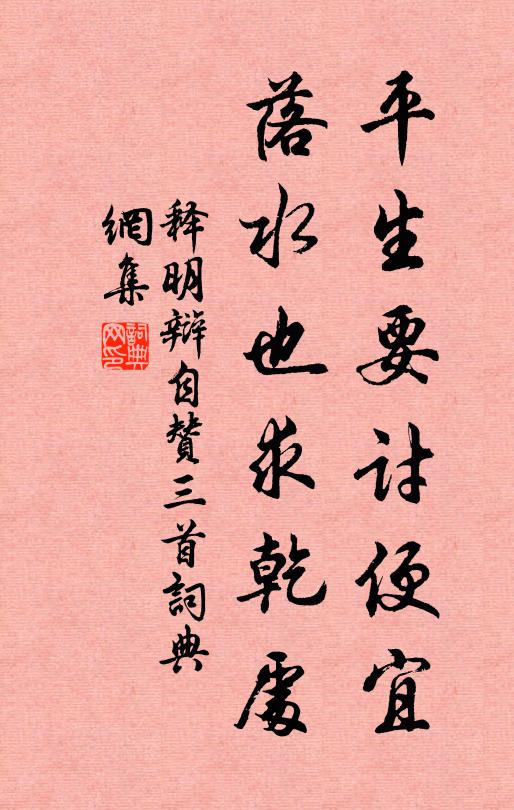 平生要討便宜
落水也求乾處
释明辯自贊三首詞典
網集
詞典網印